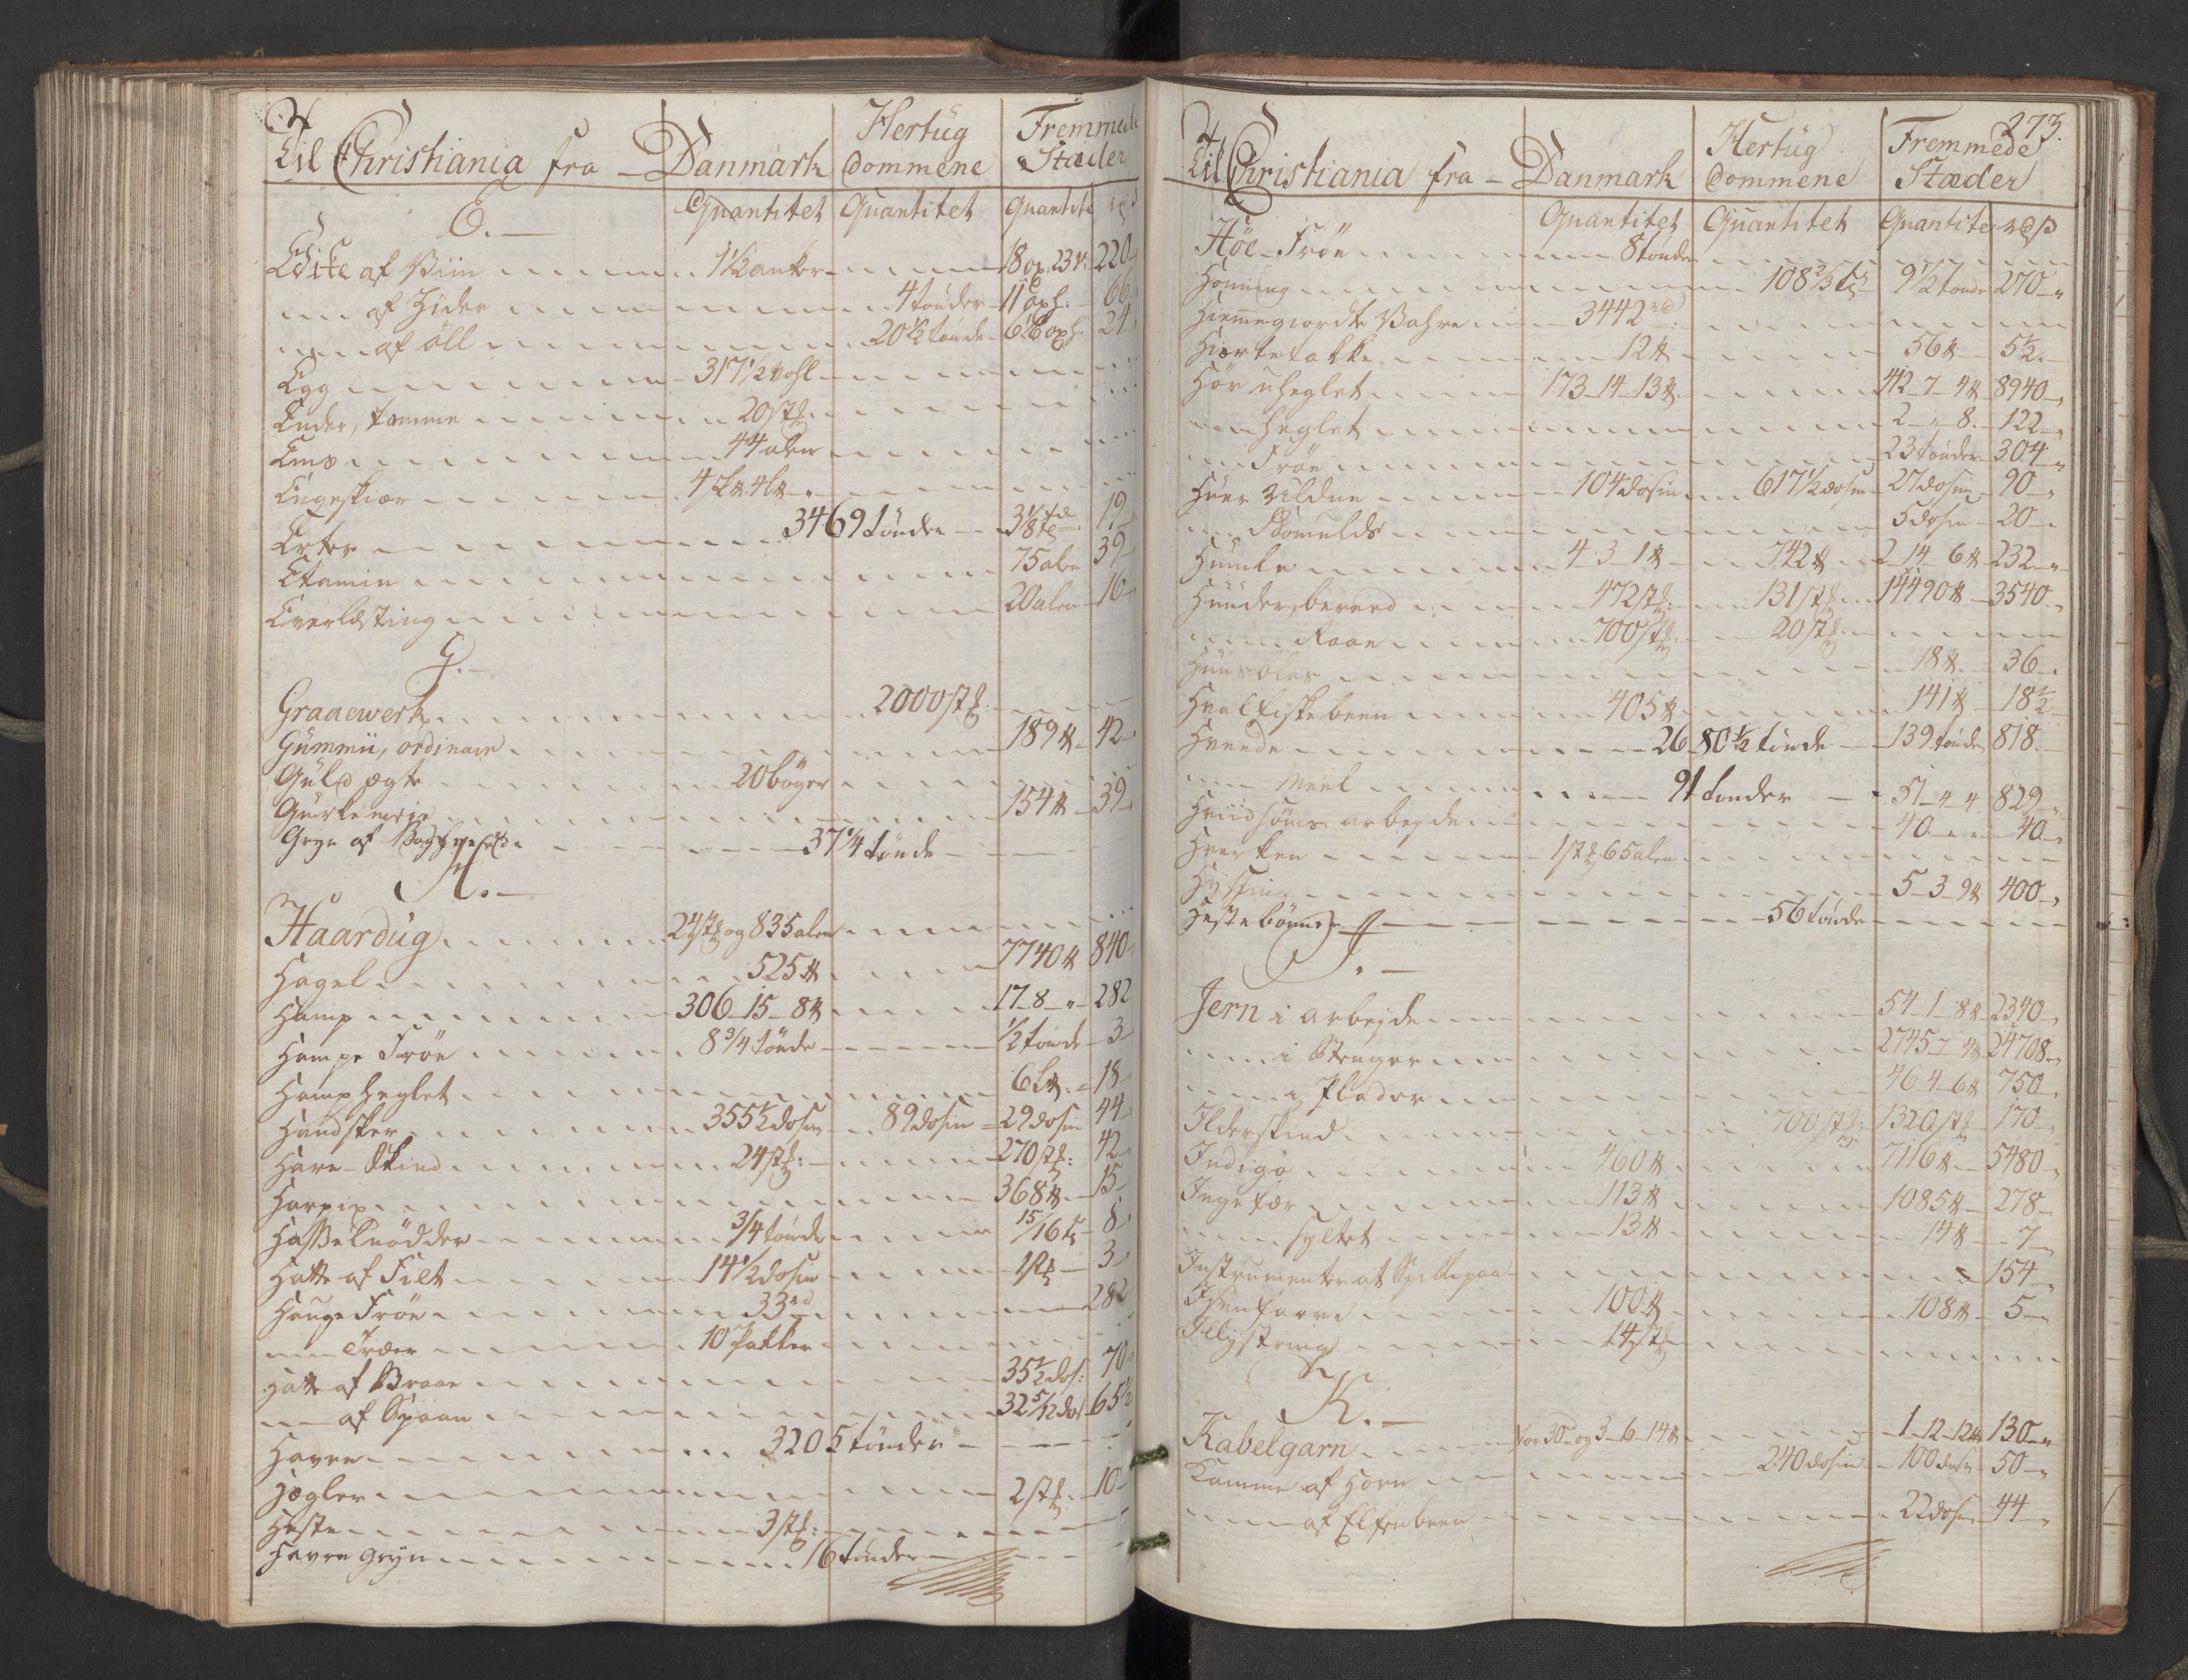 Til Christiania fra Danmark Hertug Dommene Fremmede Stæder
Quantitet Quantitet Quantitet
E.
Edike af Viin 1½ anker 18 ox. 220
af Zider 4 tønder 11 oxh. 66
af öll 20½ tønde 6 oxh. 24
Egg 317½ vohl
Ender, tamme 20 stk.
Ens 44 alen
Engeskiær
Erter 3469 tønder 3⅛ 19
Etamin 75 alen 39
Everlæsting 20 alen 16
G.
Graaewerk 2000 stk.
Gummii, ordinair 189 ℔ 42
Guld ægte 20 bøger
Gurkemeie 154 ℔ 39
Gryn af Boghvede 37¼ tønde
H.
Haardug 24 stk og 835 alen
Hagel 525 ℔ 7740 ℔ 840
Hamp 306-15-8 ℔ 17-8-" 282
Hampe Frøe 8¾ tønde ½ tønde 3
Hamp heglet 6 L℔. 18
Handsker 355½ dosin 89 dosin 29 dosin 44
Hare-Skind 24 stk: 270 stk: 42
Harpix 368 ℔ 15
Hasselnødder ¾ tønde 15/16 8
Hatte af Filt 14½ dosin 3
Hauge Frøe 33 rd 282
Træer 10 Pakker
Hatte af Straae 35½ dos: 70
af Spaan 32 5/12 dos 65½
Havre 3205 tønder
Hegler 2 stk: 10
Heste 3 stk:
Havre Gryn 16 tønder
273.
Til Christiania fra Danmark Hertug Dommene Fremmede Stæder
Quantitet Quantitet Quantitet
Høe-Frøe 8 tønde
Honning 108⅔ 9½ tønde 270
Hiemmegiordte Vahre 3442 rd:
Hiortetakke 12 ℔ 56 ℔ 5½
Hør uheglet 173-14-13 ℔ 412-7-4 ℔ 8940
heglet 2-"-8 122
Frøe 23 tønder 304
Huer Uldne 104 dosin 617½ dosin 27 dosin 90
5 dosin 20
Humle 4-3-1 ℔ 742 ℔ 2-14-6 ℔ 232
Huuder, bereed 472 stk: 131 stk 14490 ℔ 3540
Raae 700 stk: 20 stk:
Huusblas 18 ℔ 36
Hvalfiskebeen 405 ℔ 141 ℔ 18½
Hvede 2680½ tønde 139 tønde 818
Meel 91 tønder 51-4-4 829
Hviid søms arbejde 40 40
Hverken 1 stk 65 alen
Hyssing 5-3-9 ℔ 400
Hestebønner 56 tønde
J.
Jern i arbejde 54-1-8 ℔ 2340
i Stenger 2745-7-4 ℔ 24708
i Plader 46-4-6 ℔ 750
Ilderskind 700 stk: 1320 stk 170
Indigo 460 ℔ 7116 ℔ 5480
Ingefær 113 ℔ 1085 ℔ 278
syltet 13 ℔ 14 ℔ 7
Instrumenter at Spille paa 154
Isenfarve 100 ℔ 108 ℔ 5
14 stk
K.
Kabelgarn for 30 rd og 3-6-14 ℔ 1-12-12 ℔ 130
Kamme af Horn 240 dosin 100 dosin 50
af Elfenbeen 22 dosin 44